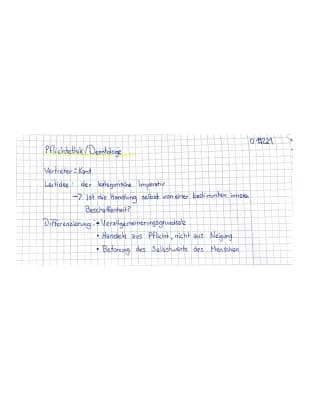 Pflichtethik/Deontologie
Vertreter: Kant
Leitidee: der kategorische Imperativ
→ Ist die Handlung selbst von einer bestimmten inneren
Beschaffenheit?
Differenzierung: • Verallgemeinerungsgrundsatz
• Handeln aus Pflicht, nicht aus Neigung
• Betonung des Selbstwerts des Menschen